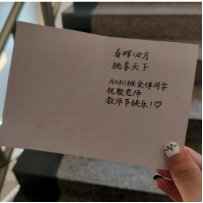 春晖四方
桃李天下
班全体同学
祝殷老师
教师节快乐!♡